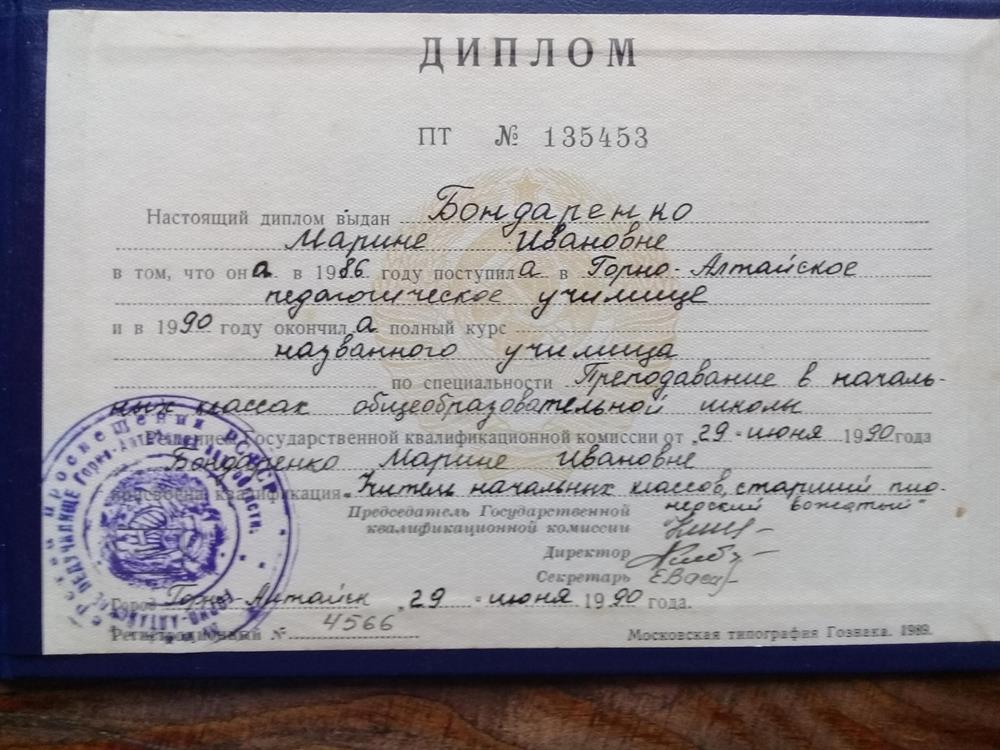 ДИПЛОМ
ПТ № 135453
Настоящий диплом выдан Бондаренко
Марине Ивановне
в том, что она в 1986 году поступила в Горно-Алтайское
педагогическое училище
и в 1990 году окончила полный курс
названного училища
по специальности Преподавание в началь-
ных классах общеобразовательной школы
Решением Государственной квалификационной комиссии от "29" июня 1990 года
Бондаренко Марине Ивановне
присвоена квалификация "Учитель начальных классов, старший пио-
нерский вожатый"
Председатель Государственной
квалификационной комиссии
Директор
Секретарь
Город Горно-Алтайск "29" июня 1990 года.
Регистрационный № 4566
Московская типография Гознака. 1989.
просвещения РСФСР
педучилище Горно-Алтайской автоном. области